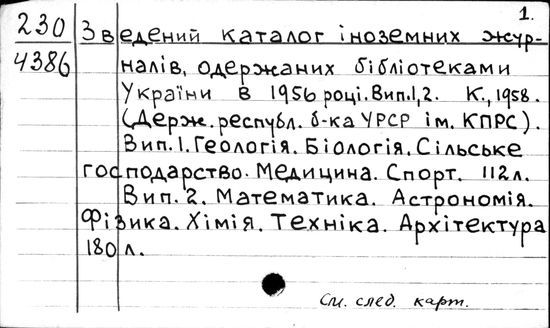 1.
230 Зведений каталог іноземних жур-
4386 налів, одержаних бібліотеками
України в 1956 році. Вип.1,2. К., 1958.
(Держ. республ. б-ка УРСР ім. КПРС).
Вип. 1. Геологія. Біологія. Сільське
господарство. Медицина. Спорт. 112 л.
Вип. 2. Математика. Астрономія.
Фізика. Хімія. Техніка. Архітектура
180 л.
См. след. карт.